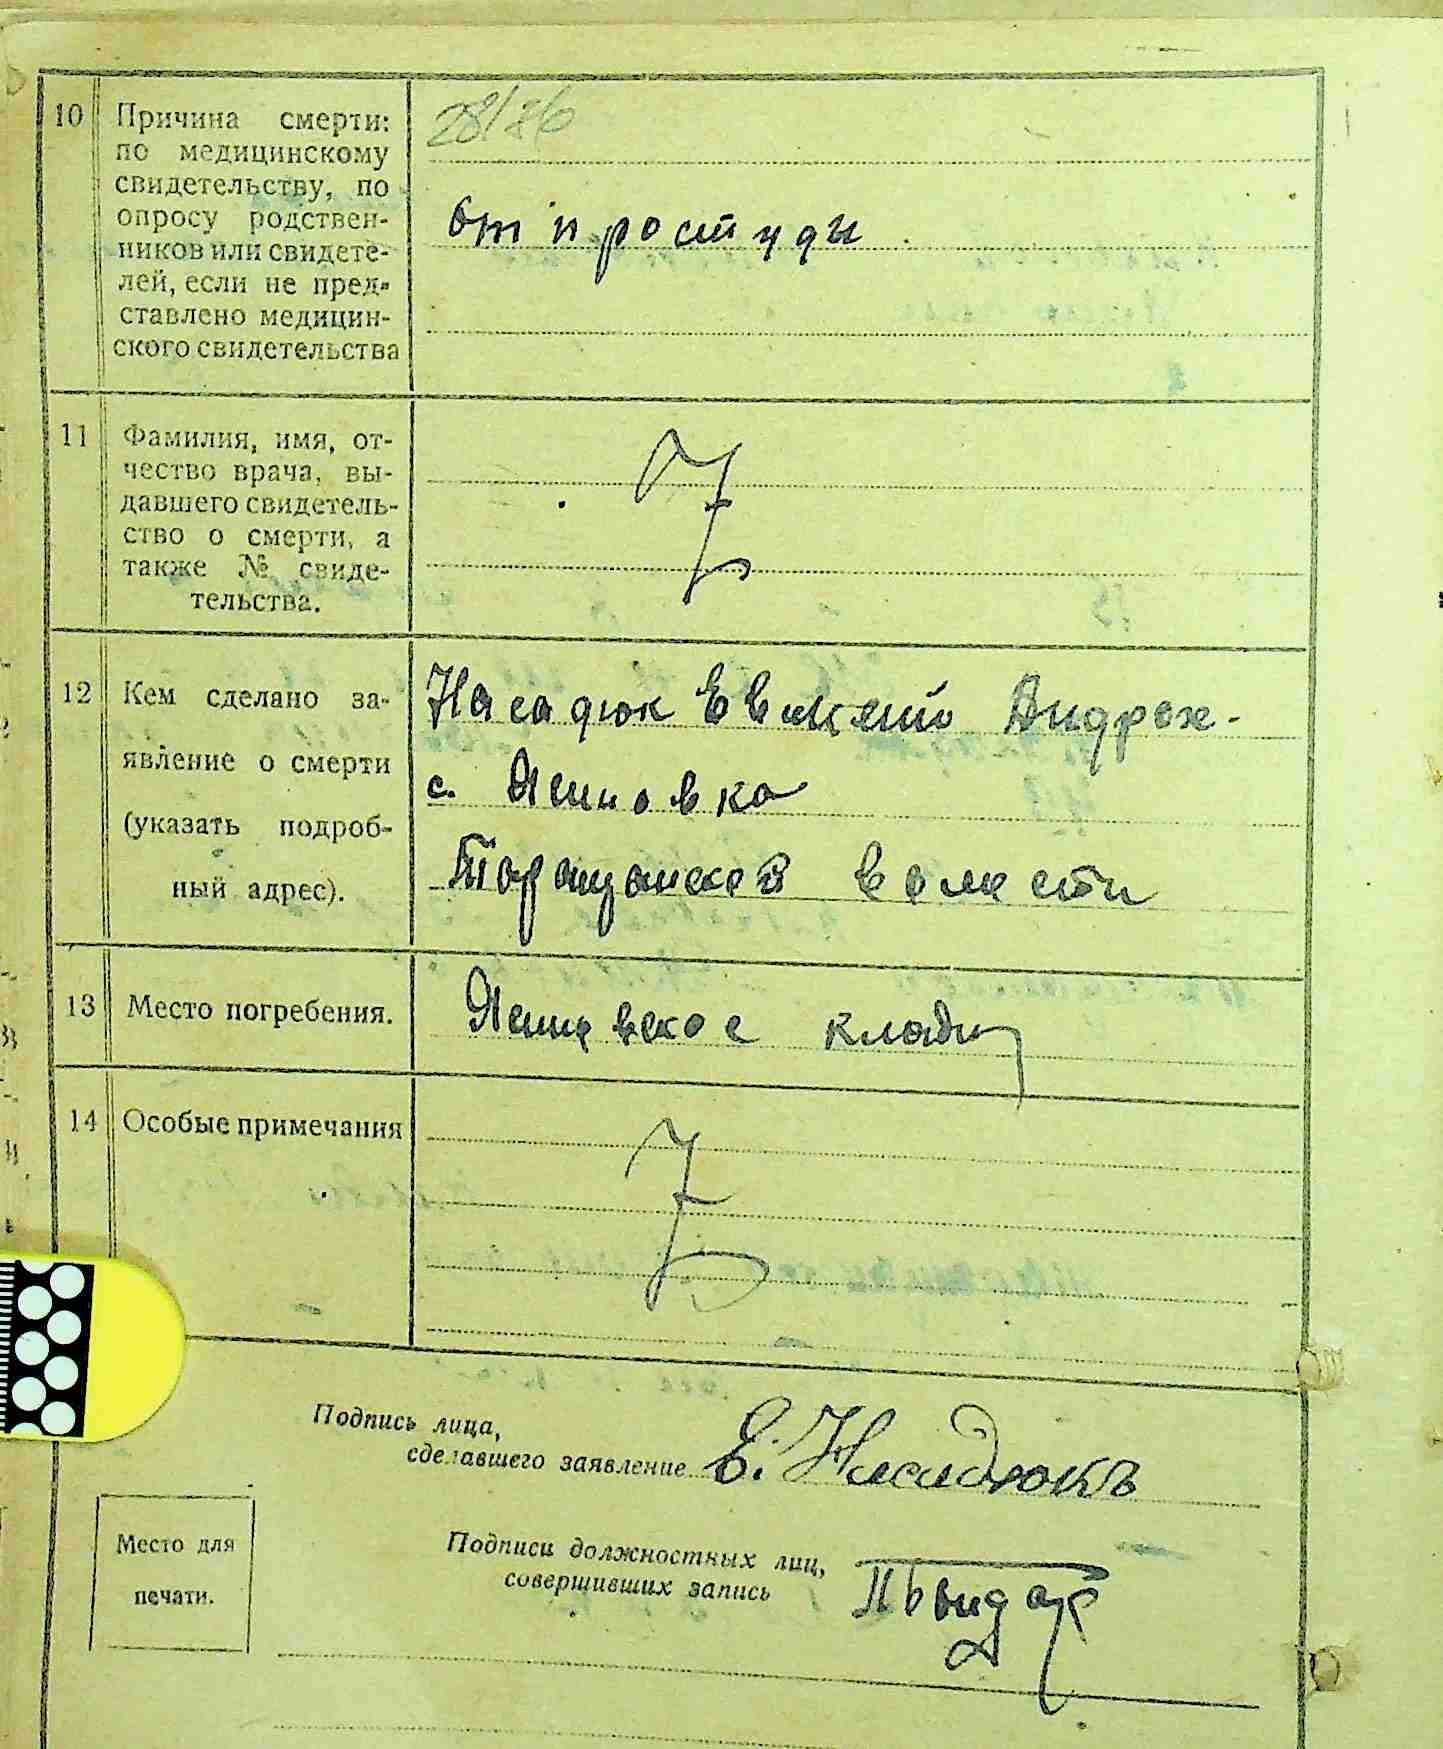 10 Причина смерти:
по медицинскому
свидетельству, по
опросу родствен-
ников или свидете-
лей, если не пред-
ставлено медицин-
ского свидетельства
28/76
От простуды
11 Фамилия, имя, от-
чество врача, вы-
давшего свидетель-
ство о смерти, а
также № свиде-
тельства.
12 Кем сделано за-
явление о смерти
(указать подроб-
ный адрес).
Насадюк Евгений Андрох-
с. Ясиновка
волости
13 Место погребения.
Ясиновское кладищ
14 Особые примечания
Подпись лица,
сделавшего заявление Е. Насадюкъ
Место для
печати.
Подписи должностных лиц,
совершивших запись